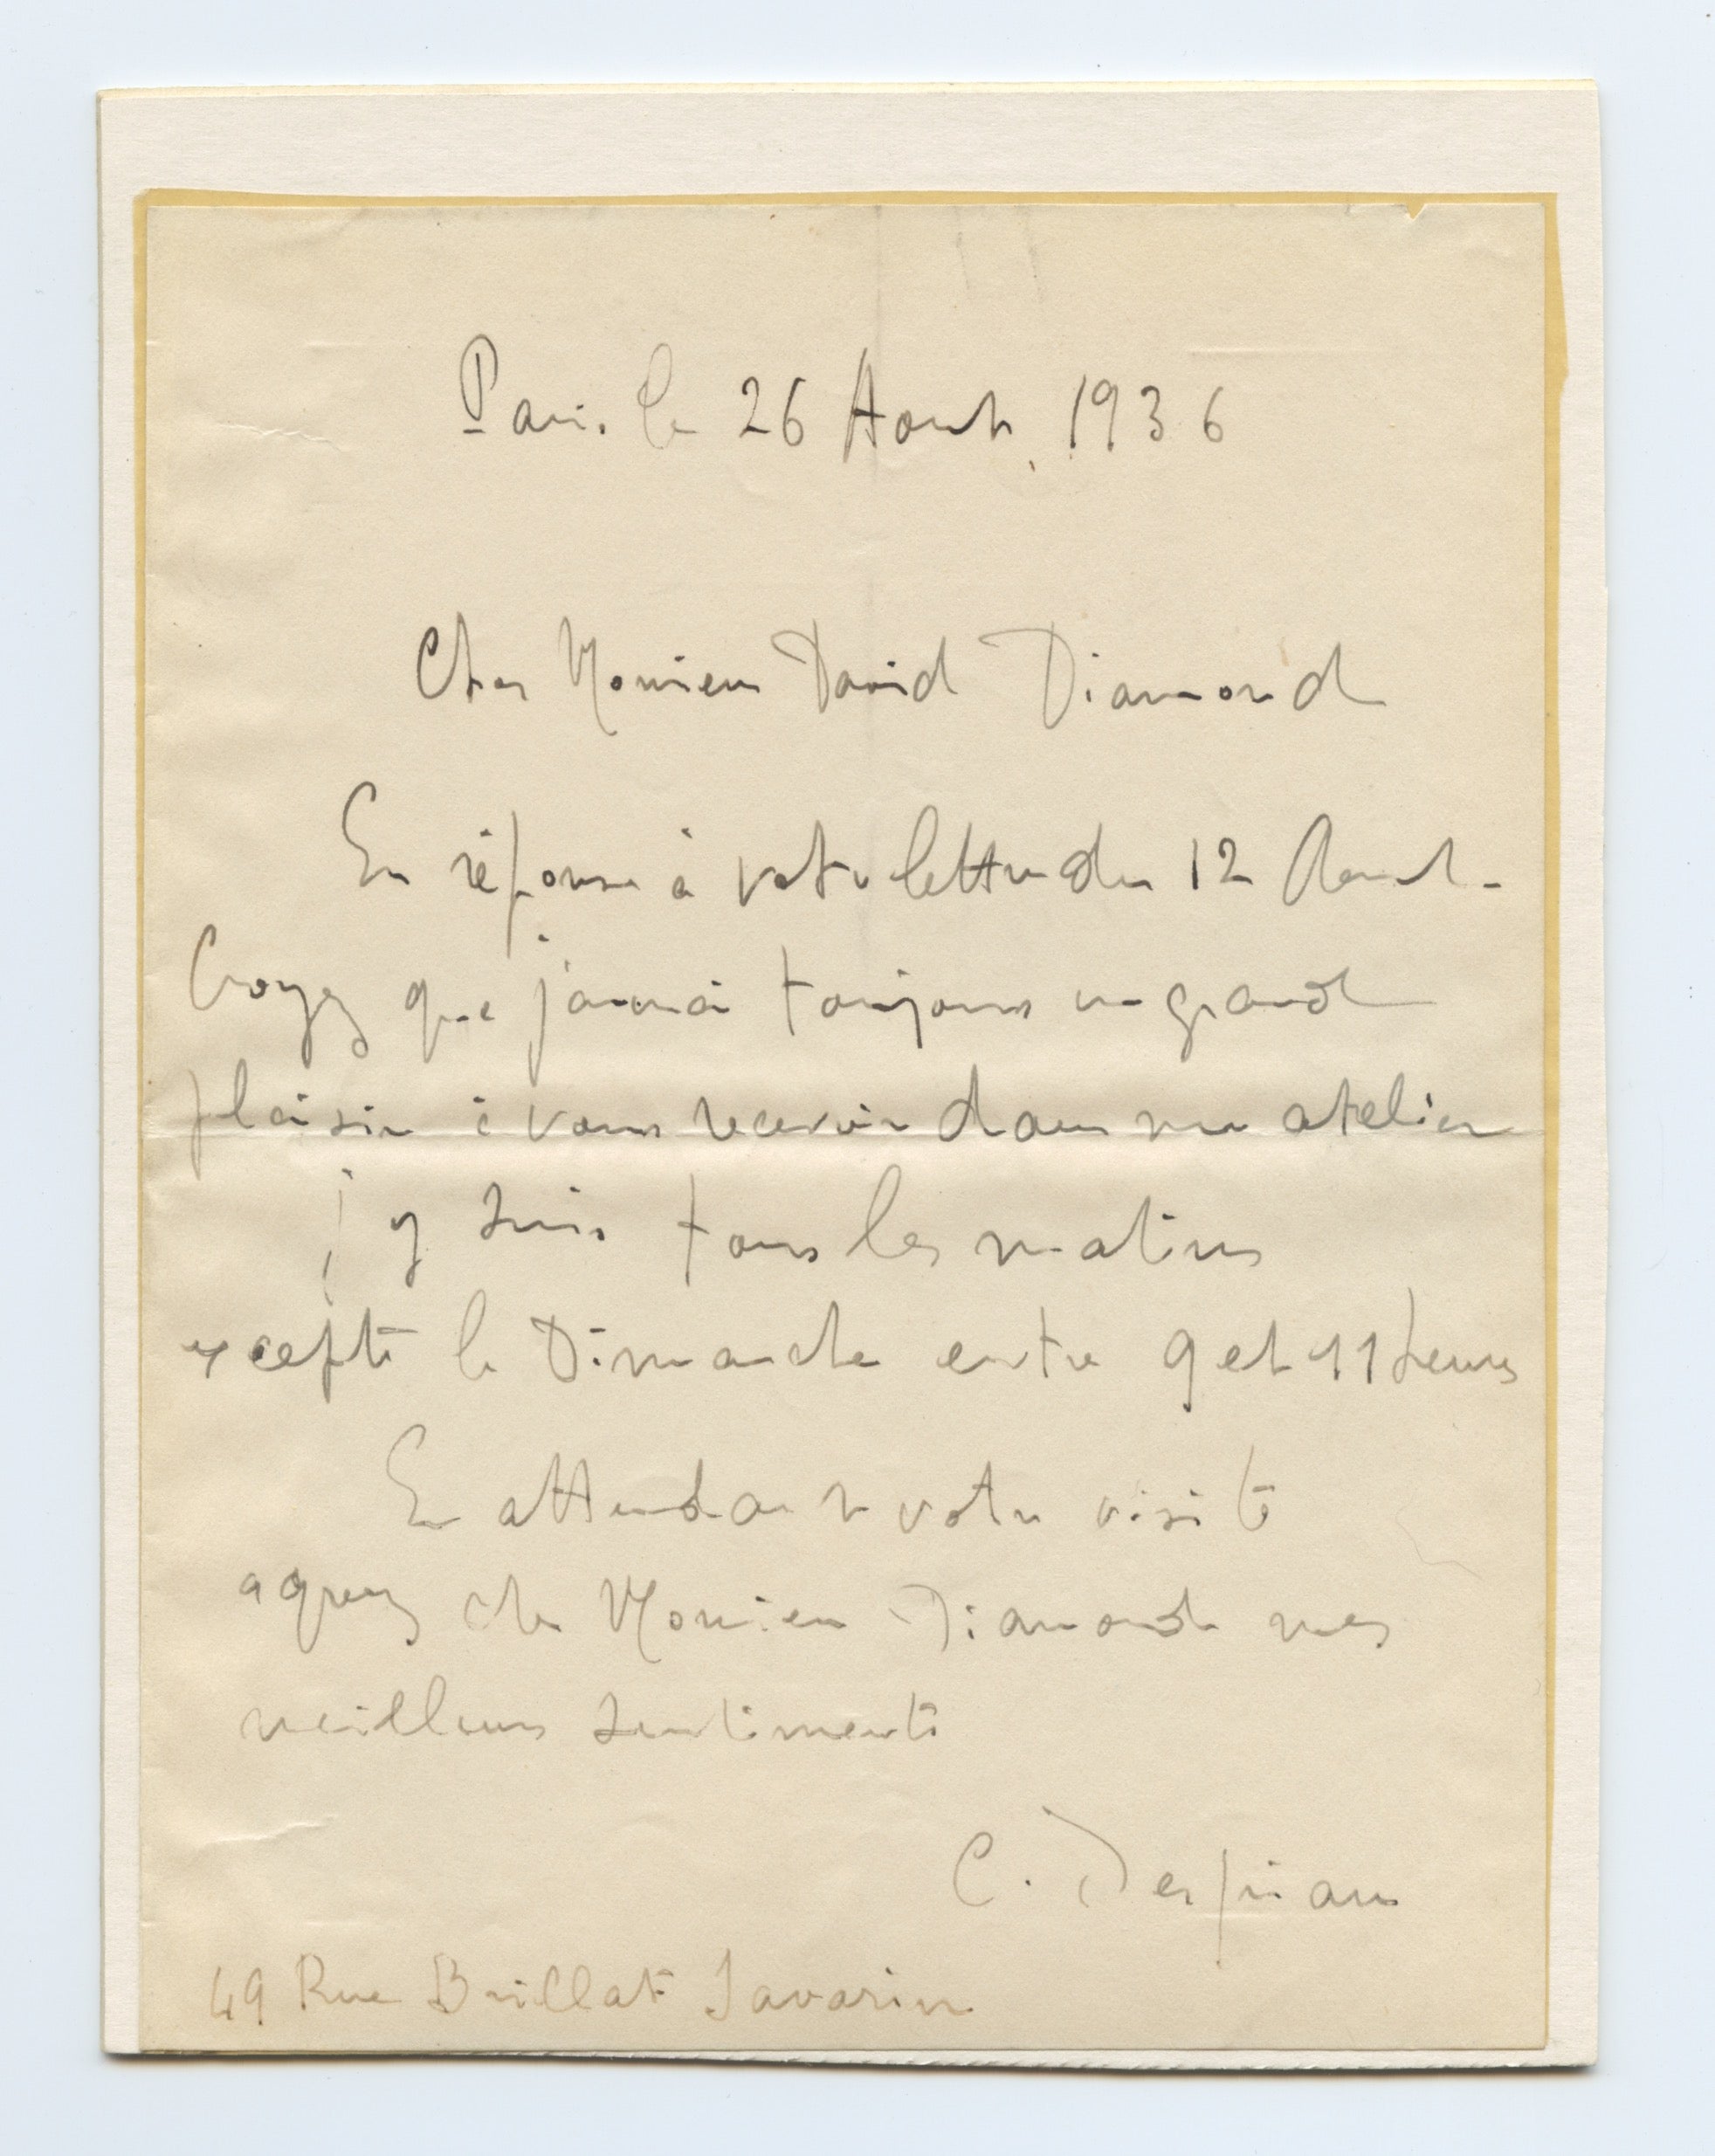 Paris le 26 Aout 1936
Cher Monsieur David Diamond
En réponse à votre lettre du 12 Aout -
Croyez que j'aurai toujours un grand
plaisir à vous recevoir dans mon atelier
j'y suis tous les matins
excepté le Dimanche entre 9 et 11 heures
En attendant votre visite
agreez cher Monsieur Diamond mes
meilleurs sentiments
C. Despiau
49 Rue Brillat Savarin